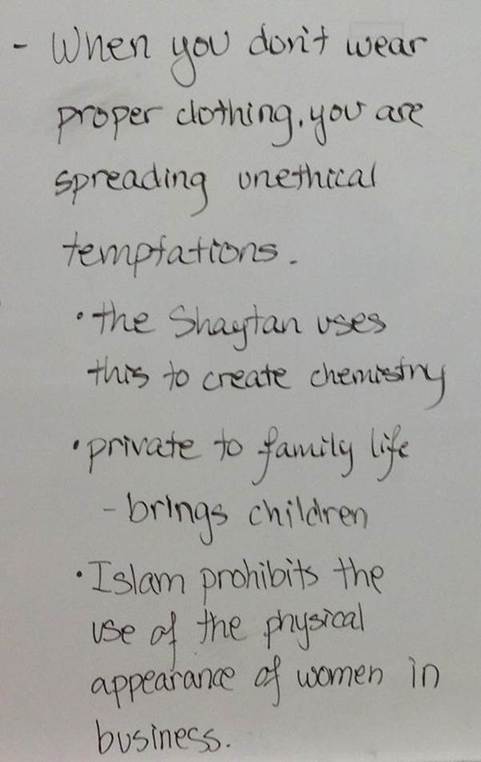 - When you don't wear
proper clothing, you are
spreading unethical
temptations.
• the Shaytan uses
this to create chemistry
• private to family life
- brings children
• Islam prohibits the
use of the physical
appearance of women in
business.